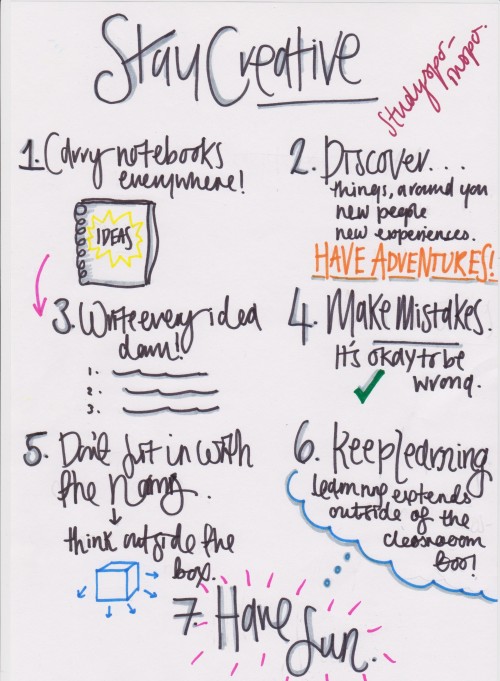 Stay Creative
Studyspo-
inspo.
1. Carry notebooks
everywhere!
IDEAS
2. Discover...
things, around you
new people
new experiences.
HAVE ADVENTURES!
3. Write every idea
down!
1.
2.
3.
4. Make Mistakes.
It's okay to be
wrong.
5. Don't fit in with
the norms.
think outside the
box.
6. Keep learning
learning extends
outside of the
classroom
too!
7. Have
fun.